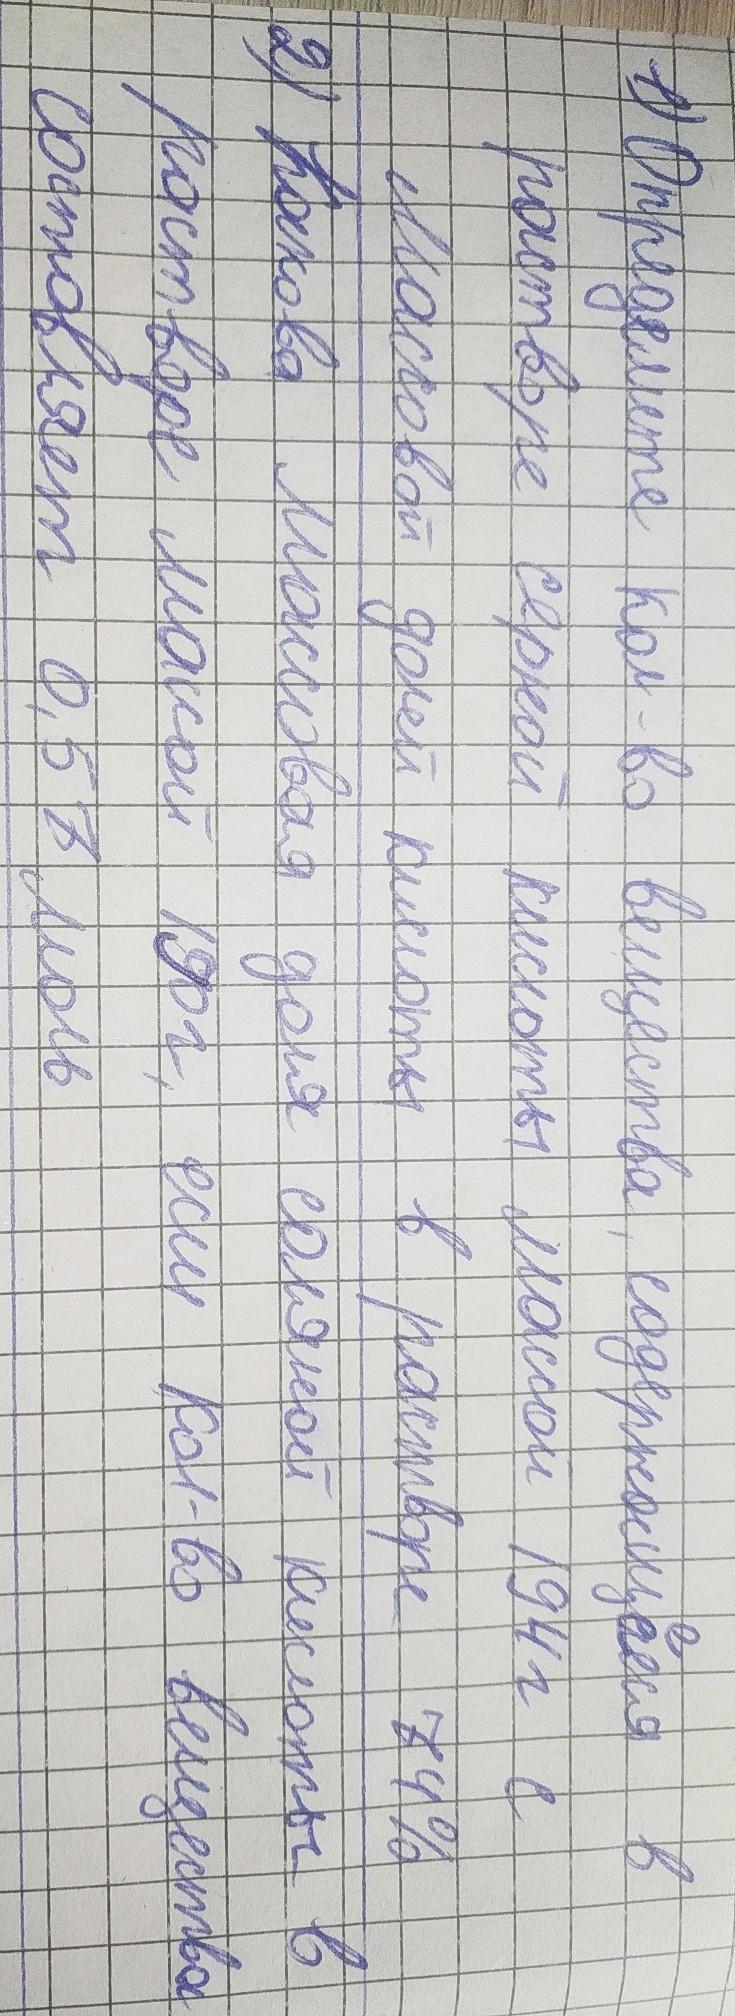 1) Определите кол-во вещества, содержащееся в
растворе серной кислоты массой 194г с
массовой долей кислоты в растворе 74%
2) Какова массовая доля соляной кислоты в
растворе массой 190г, если кол-во вещества
составляет 0,57 моль